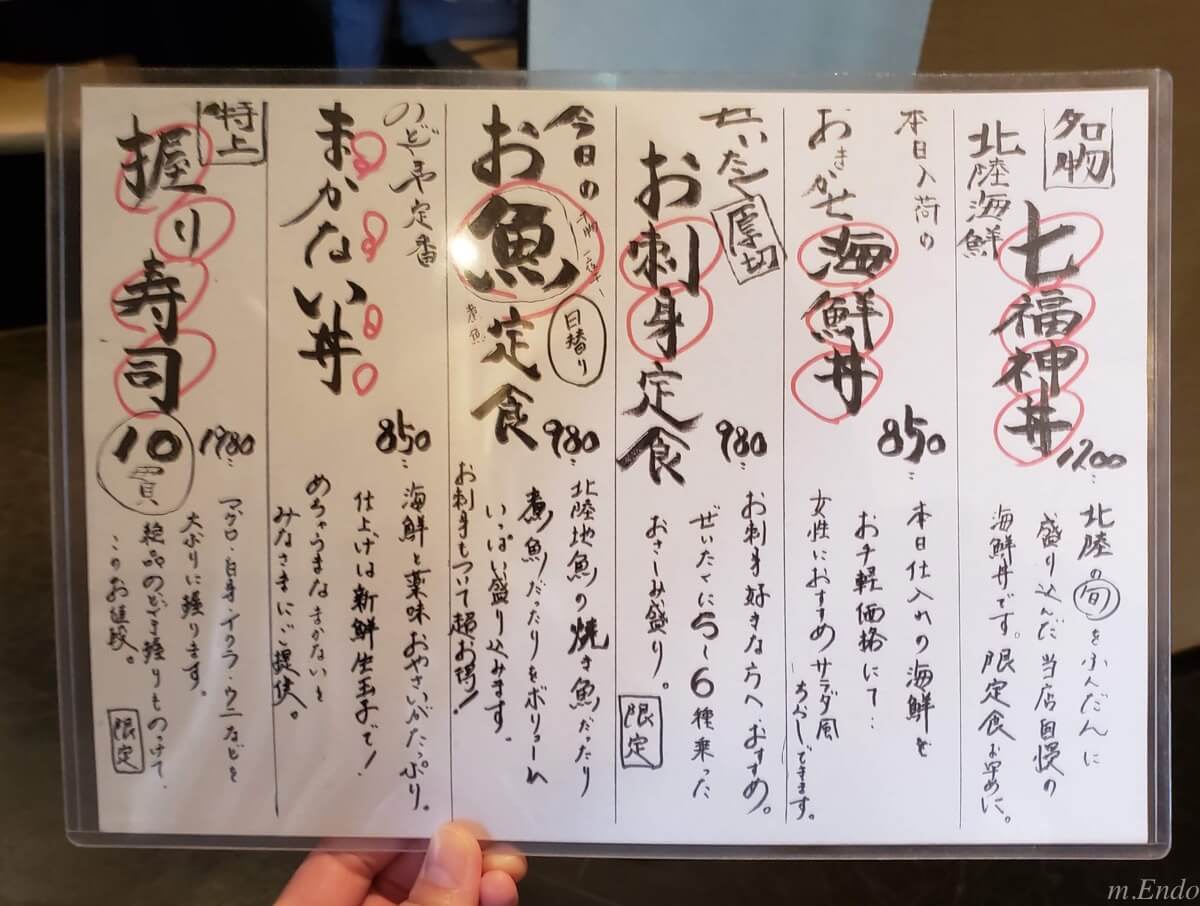 名物
北陸海鮮
七福神丼
1200
北陸の旬をふんだんに
盛り込んだ当店自慢の
海鮮丼です。限定食お早めに。
本日入荷の
おまかせ
海鮮丼
850
本日仕入れの海鮮を
お手軽価格にて…
女性におすすめサラダ風
もできます。
ぜいたく
厚切
お刺身定食
980
お刺身好きな方へおすすめ。
ぜいたくに5〜6種乗った
おさしみ盛り。
限定
今日の
お魚定食
日替り
煮魚
980
北陸地魚の焼き魚だったり
煮魚だったりをボリューム
いっぱい盛り込みます。
お刺身もついて超お得!
のどや定番
まかない丼
850
海鮮と薬味おやさいがたっぷり。
仕上げは新鮮生玉子で!
めちゃうまなまかないを
みなさまにご提供。
特上
握り寿司
10貫
1980
マグロ・白身・イクラ・ウニなどを
大ぶりに握ります。
絶品のどぐろ握りものつけて、
このお値段。
限定
m.Endo